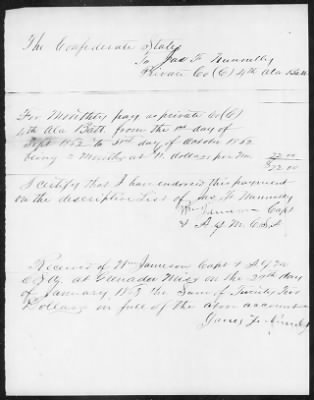 The Confederate States
To Jas F. Nunnelly
Private Co (C) 4th Ala Batt
For Monthly pay as private Co (C)
4th Ala Batt from the 1st day of
Sept 1862 to 31st day of October 1862
being 2 Months at 11 dollars per Mo. 22.00
$22.00
I certify that I have endorsed this payment
on the descriptive List of Jas F. Nunnelly
Wm Jameson Capt
& A Q M C.S.A
Received of Wm Jameson Capt & A Q M
C.S.A. at Grenada Miss on the 29th day
of January 1863 the Sum of Twenty Two
Dollars in full of the above account
James F. Nunnelly